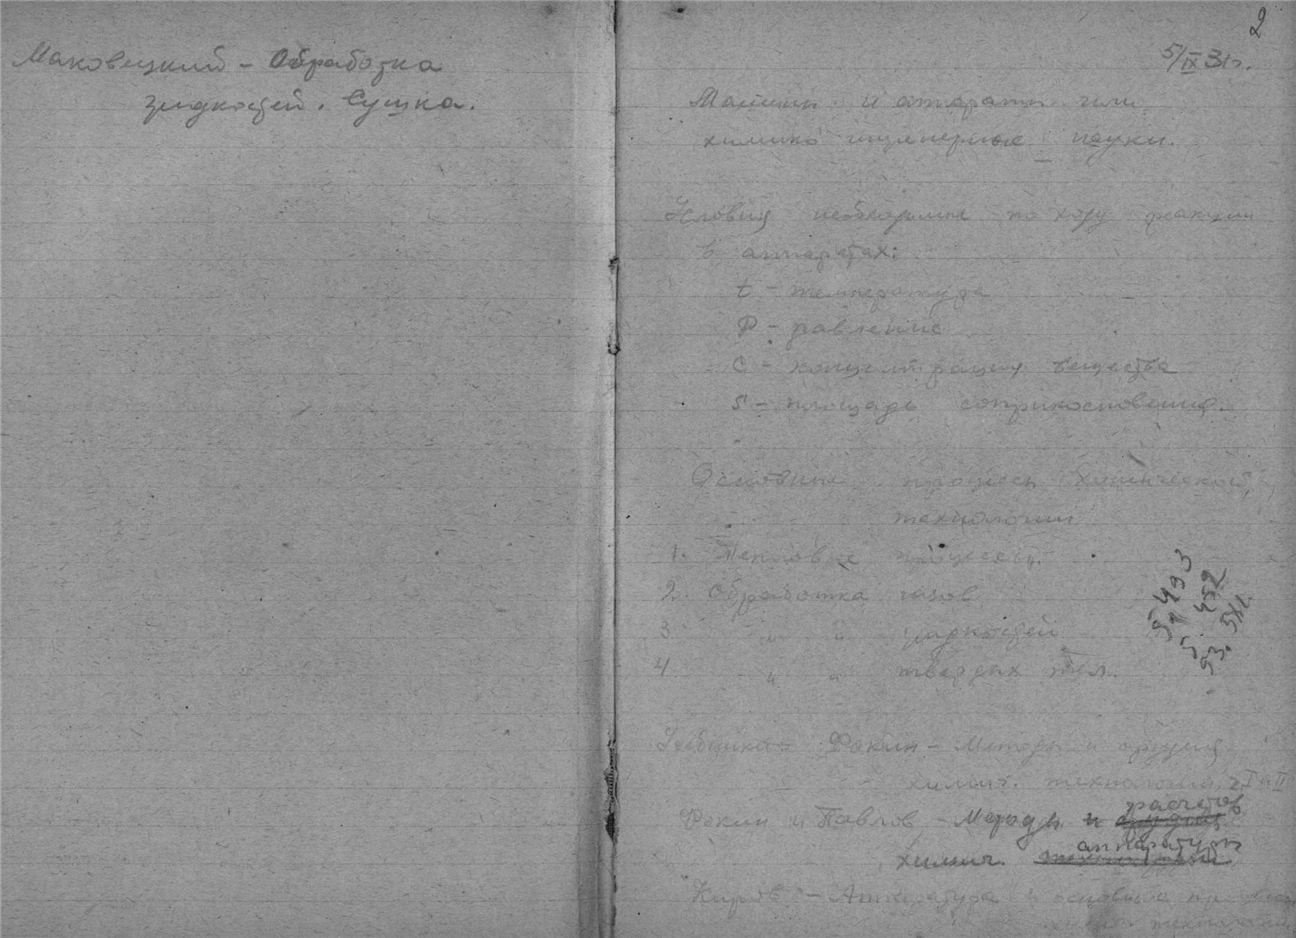 Маковецкий – Обработка
жидкостей. Сушка.
2
5/IX 31г.
Машины и аппараты или
химико инженерные науки.
Условия необходимые по ходу реакции
в аппаратах:
t – температура
P – давление
C – концентрация вещества
S – площадь соприкосновения.
Основные процессы химической
технологии
1. Тепловые процессы.
2. Обработка газов
3 " " жидкостей
4 " " твердых тел.
5493
452
53. 5XI.
Фокин – Методы и орудия
химич. технологии I и II
расчетов
Фокин и Павлов – Методы и орудия
аппаратуры
химич.
– Аппаратура и основные